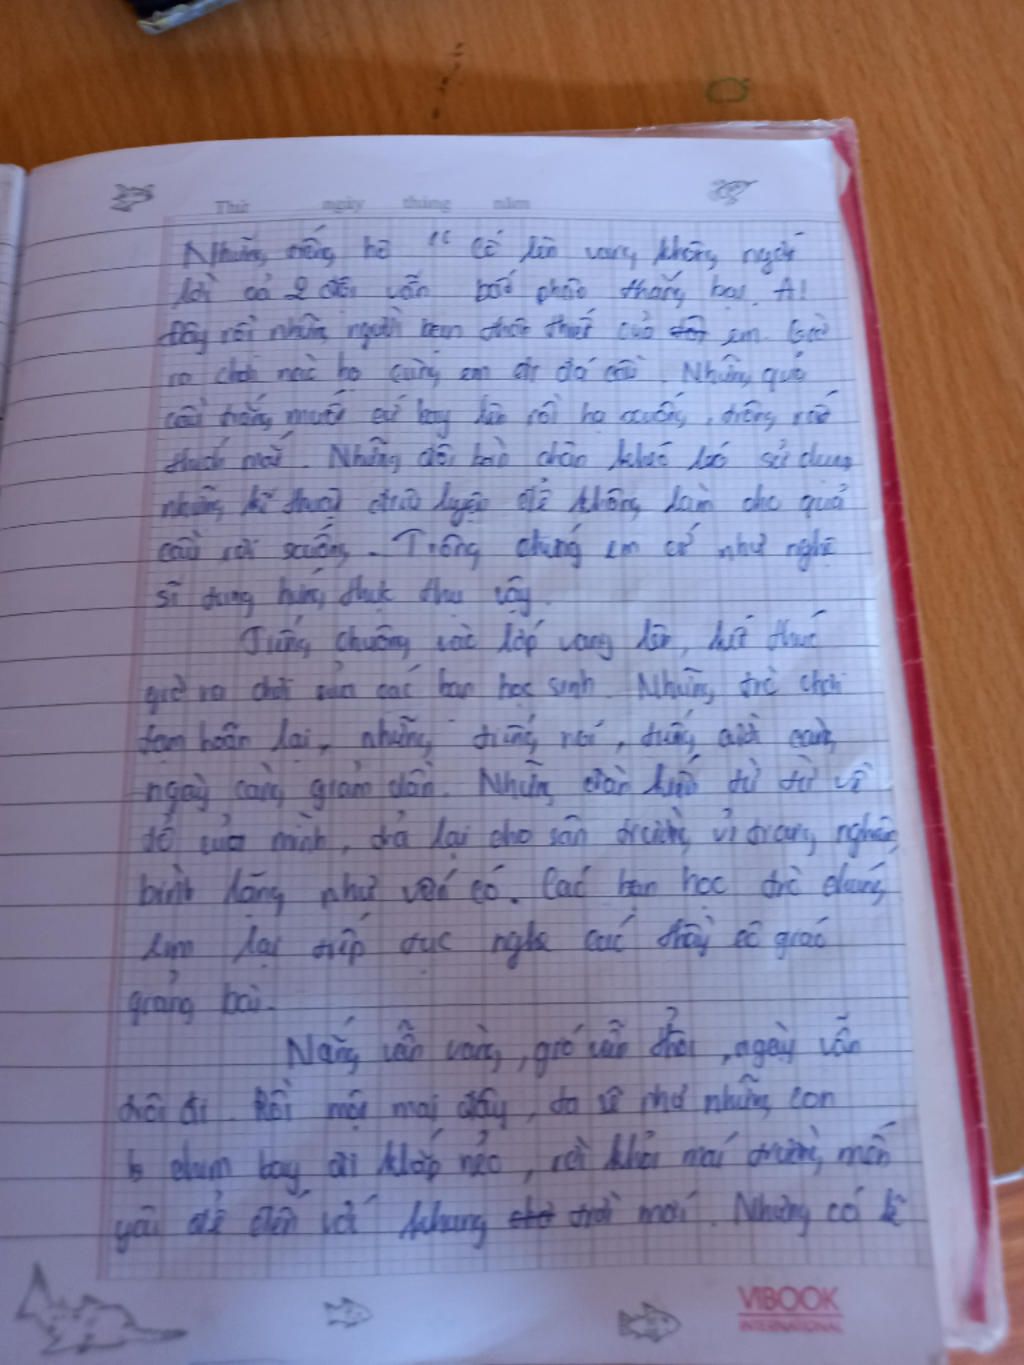 Thứ ngày tháng năm
Những tiếng hò “ Cố lên vang không ngớt
lời cả 2 đội vẫn bất phân thắng bại. A!
Đây rồi những người bạn thân thiết của em. Giờ
ra chơi nào họ cùng em đi đá cầu. Những quả
cầu trắng muốt cứ bay lên rồi hạ xuống, trông rất
thích mắt. Những đôi bàn chân khéo léo sử dụng
những kĩ thuật điêu luyện để không làm cho quả
cầu rơi xuống. Trông chúng em cứ như nghệ
sĩ tung hứng thực thụ vậy.
Tiếng chuông vào lớp vang lên, kết thúc
giờ ra chơi của các bạn học sinh. Những trò chơi
tạm hoãn lại, những tiếng nói, tiếng cười càng
ngày càng giảm dần. Những đàn kiến từ từ về
tổ của mình, trả lại cho sân trường vẻ trang nghiêm
bình lặng như vốn có. Các bạn học trò chúng
em lại tiếp tục nghe các thầy cô giáo
giảng bài.
Nắng vẫn vàng, gió vẫn thổi, ngày vẫn
trôi đi. Rồi một mai đây, ta sẽ như những con
chim bay đi khắp nẻo, rời khỏi mái trường mến
yêu để đến với khung trời mới. Nhưng có lẽ
VIBOOK
INTERNATIONAL